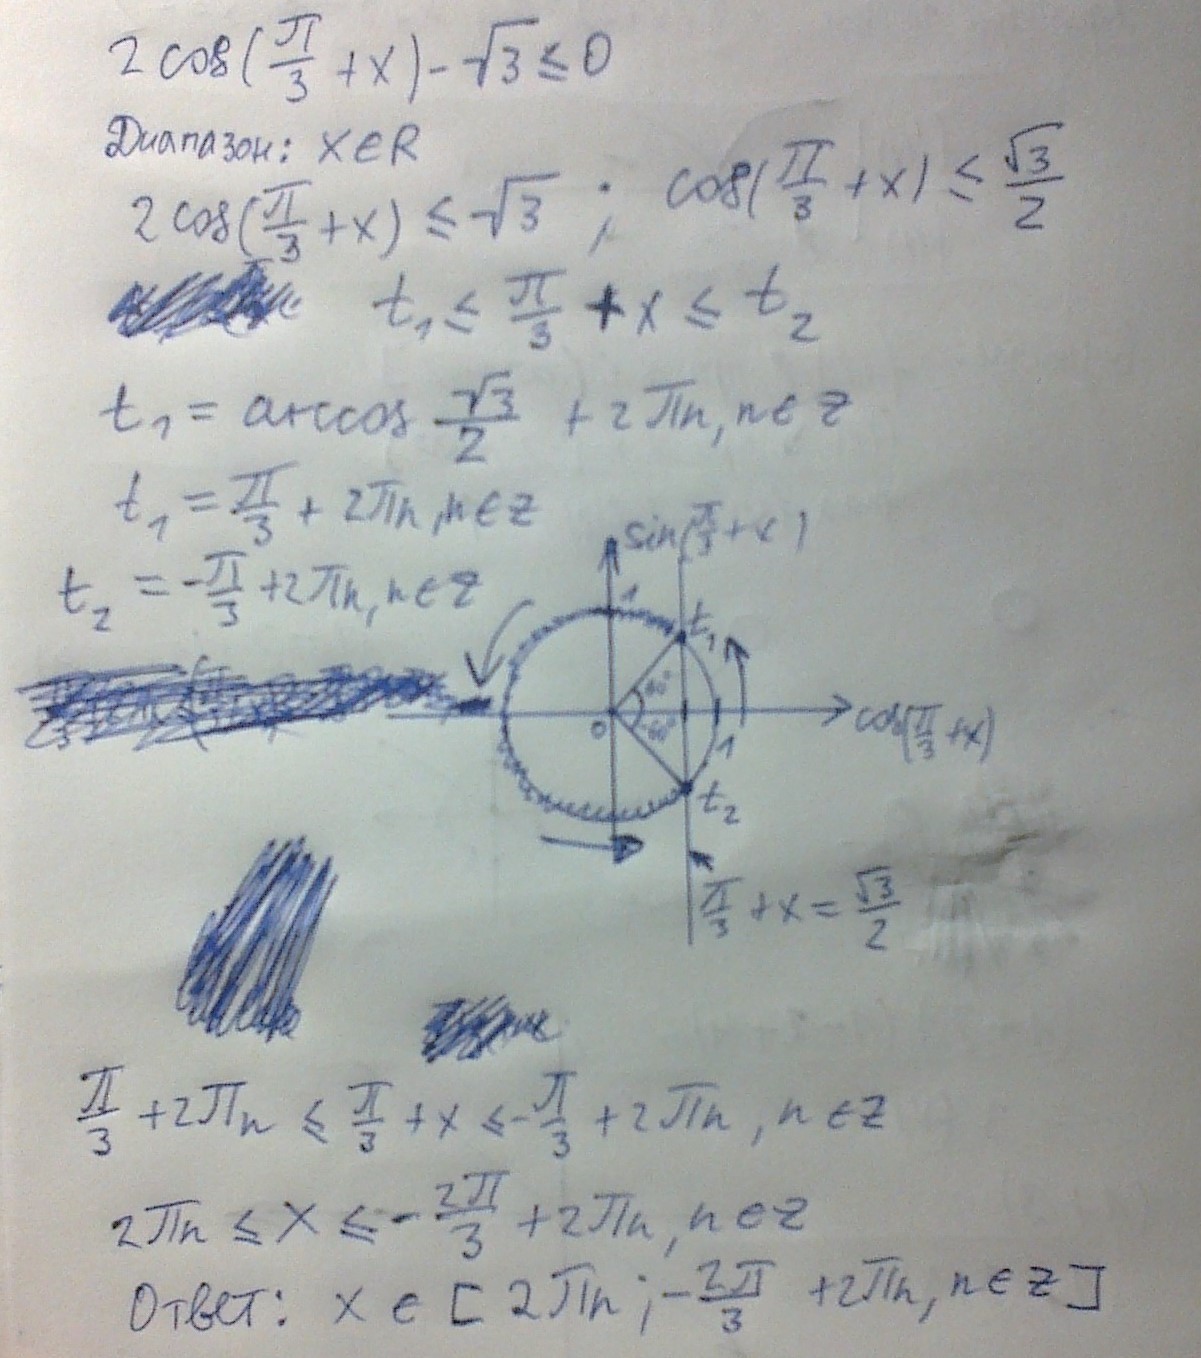 2cos(π/3 + x) - √3 ≤ 0
Диапазон: x ∈ R
2cos(π/3 + x) ≤ √3 ; cos(π/3 + x) ≤ √3/2
t₁ ≤ π/3 + x ≤ t₂
t₁ = arccos √3/2 + 2πn, n ∈ z
t₁ = π/3 + 2πn, n ∈ z
t₂ = -π/3 + 2πn, n ∈ z
sin(π/3 + x)
1
t₁
60°
-60°
0
1
cos(π/3 + x)
t₂
π/3 + x = √3/2
π/3 + 2πn ≤ π/3 + x ≤ -π/3 + 2πn, n ∈ z
2πn ≤ x ≤ -2π/3 + 2πn, n ∈ z
Ответ: x ∈ [2πn ; -2π/3 + 2πn, n ∈ z]